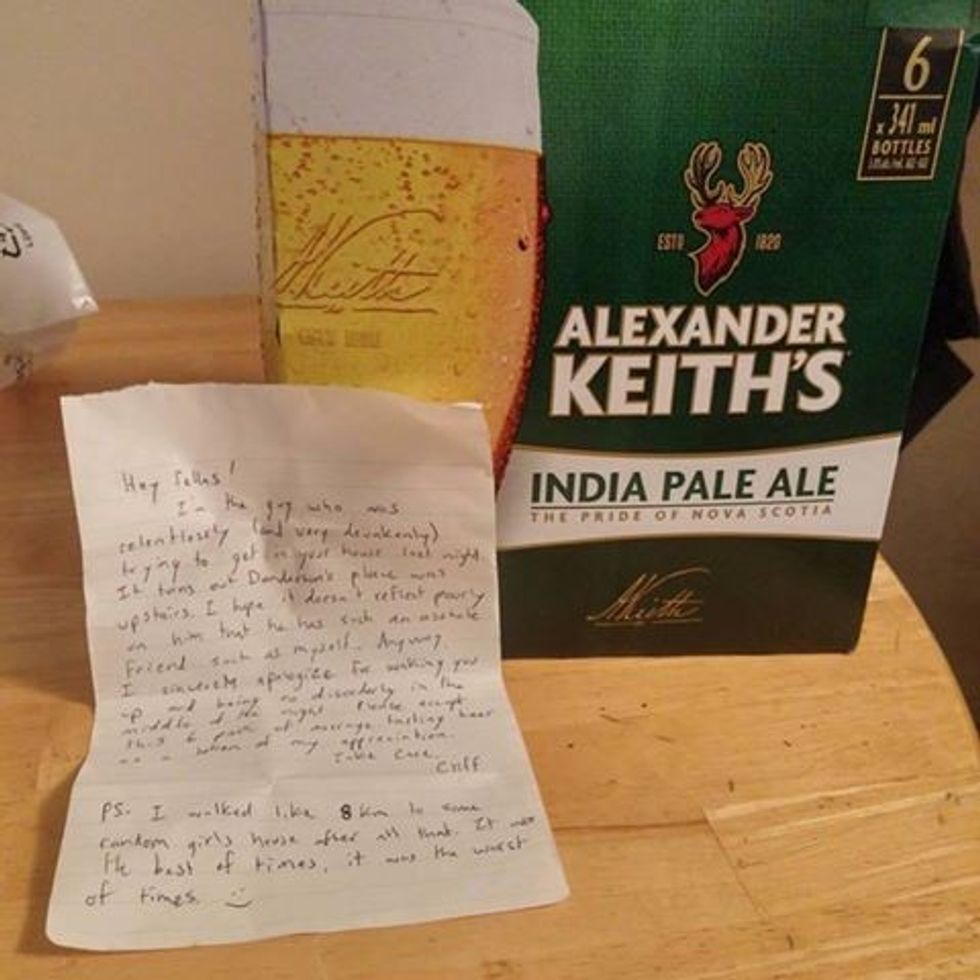 6
x 341 ml
BOTTLES
ESTD 1820
ALEXANDER
KEITH'S
INDIA PALE ALE
THE PRIDE OF NOVA SCOTIA
AKeith
AKeith
Hey fellas!
I'm the guy who was
relentlessly (and very drunkenly)
trying to get in your house last night.
It turns out Danderson's place was
upstairs. I hope it doesn't reflect poorly
on him that he has such an asshole
friend such as myself. Anyway
I sincerely apologize for waking you
up and being so disorderly in the
middle of the night. Please accept
this 6 pack of average tasting beer
as a token of my appreciation.
Take Care,
Cliff
PS. I walked like 8 km to some
random girls house after all that. It was
the best of times, it was the worst
of times. :)